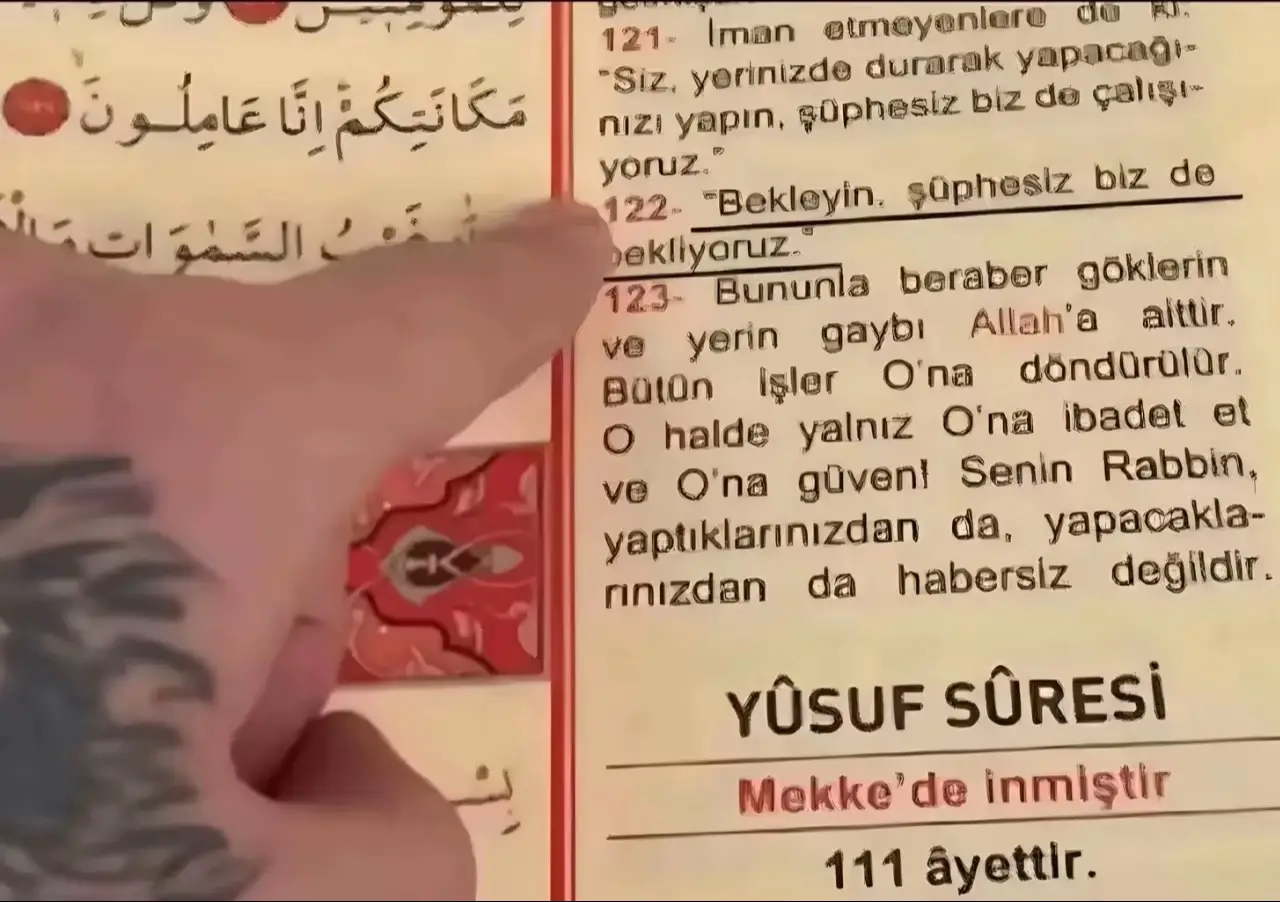 مَكَانَتِكُمْ اِنَّا عَامِلُونَ
السَّمٰوَاتِ
121- İman etmeyenlere de ki:
"Siz, yerinizde durarak yapacağı-
nızı yapın, şüphesiz biz de çalışı-
yoruz."
122- "Bekleyin, şüphesiz biz de
bekliyoruz."
123- Bununla beraber göklerin
ve yerin gaybı Allah'a aittir.
Bütün işler O'na döndürülür.
O halde yalnız O'na ibadet et
ve O'na güven! Senin Rabbin,
yaptıklarınızdan da, yapacakla-
rınızdan da habersiz değildir.
YÛSUF SÛRESİ
Mekke'de inmiştir
111 âyettir.